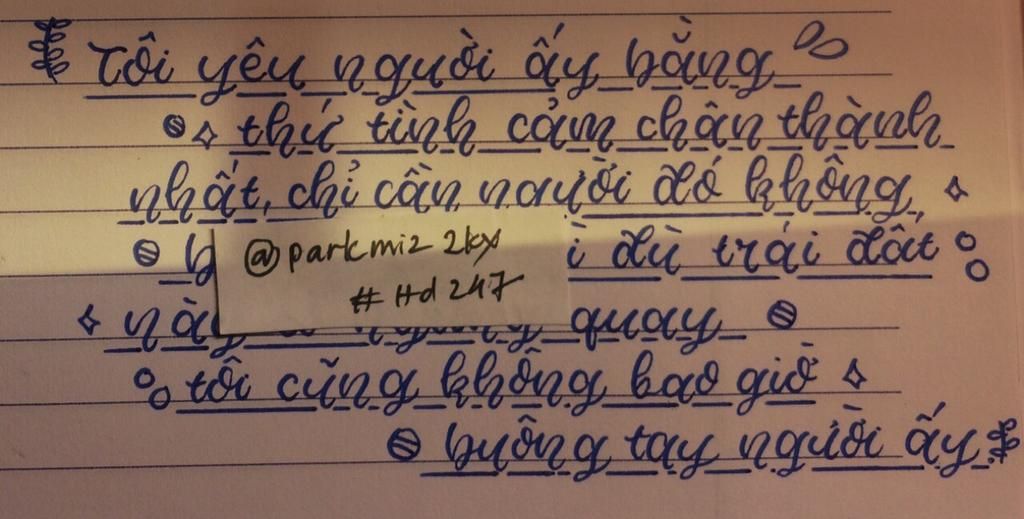 Tôi yêu người ấy bằng
thứ tình cảm chân thành
nhất, chỉ cần người đó không
dù trái đất
@parkmiz 2kx
# Hd 247
quay
tôi cũng không bao giờ
buông tay người ấy